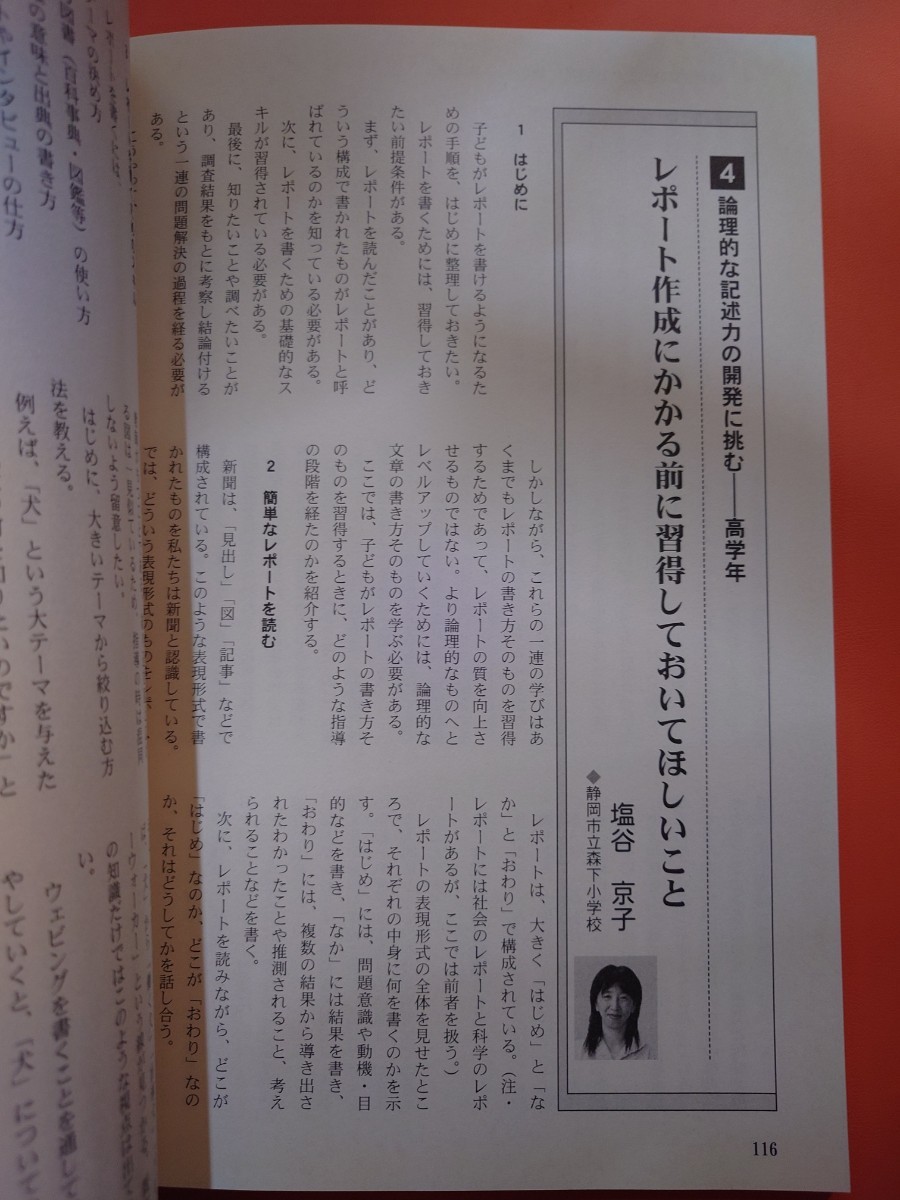 4 論理的な記述力の開発に挑む――高学年
レポート作成にかかる前に習得しておいてほしいこと
塩谷 京子
◆静岡市立森下小学校
1 はじめに
子どもがレポートを書けるようになるた
めの手順を、はじめに整理しておきたい。
レポートを書くためには、習得しておき
たい前提条件がある。
まず、レポートを読んだことがあり、ど
ういう構成で書かれたものがレポートと呼
ばれているのかを知っている必要がある。
次に、レポートを書くための基礎的なス
キルが習得されている必要がある。
最後に、知りたいことや調べたいことが
あり、調査結果をもとに考察し結論付ける
という一連の問題解決の過程を経る必要が
ある。
しかしながら、これらの一連の学びはあ
くまでもレポートの書き方そのものを習得
するためであって、レポートの質を向上さ
せるものではない。より論理的なものへと
レベルアップしていくためには、論理的な
文章の書き方そのものを学ぶ必要がある。
ここでは、子どもがレポートの書き方そ
のものを習得するときに、どのような指導
の段階を経たのかを紹介する。
2 簡単なレポートを読む
新聞は、「見出し」「図」「記事」などで
構成されている。このような表現形式で書
かれたものを私たちは新聞と認識している。
では、どういう表現形式のものをレポ
レポートは、大きく「はじめ」と「な
か」と「おわり」で構成されている。（注・
レポートには社会のレポートと科学のレポ
ートがあるが、ここでは前者を扱う。）
レポートの表現形式の全体を見せたとこ
ろで、それぞれの中身に何を書くのかを示
す。「はじめ」には、問題意識や動機・目
的などを書き、「なか」には結果を書き、
「おわり」には、複数の結果から導き出さ
れたわかったことや推測されること、考え
られることなどを書く。
次に、レポートを読みながら、どこが
「はじめ」なのか、どこが「おわり」なの
か、それはどうしてかを話し合う。
116
の決め方
図書（百科事典・図鑑等）の使い方
の意味と出典の書き方
インタビューの仕方
しないよう留意したい。
はじめに、大きいテーマから絞り込む方
法を教える。
例えば、「犬」という大テーマを与えた
りたいのですか」と
の知識だけではこのような視点は出
い。
ウェビングを書くことを通して
やしていくと、「犬」について